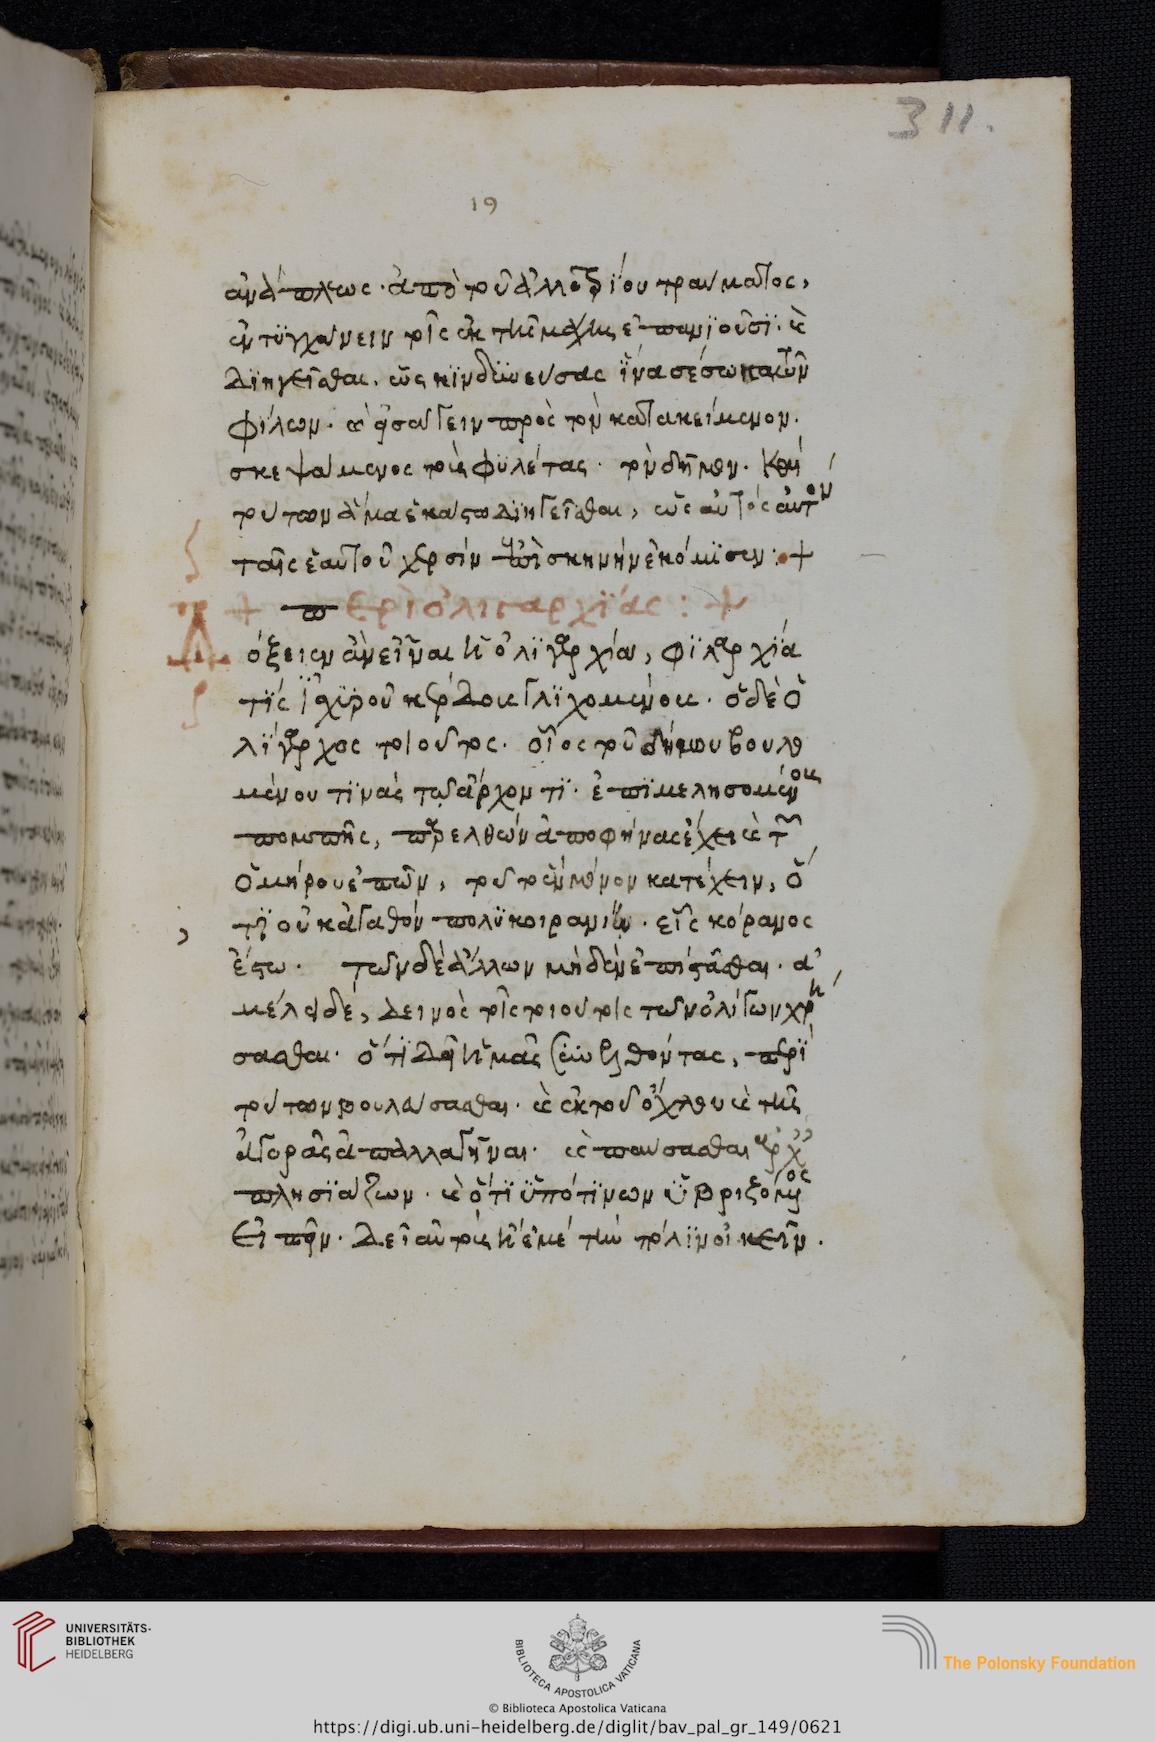 311.
19
ἀνάπλεως ἀπὸ τοῦ ἀλλοτρίου τραύματος,
ἐντυγχάνειν τοῖς ἐκ τῆς μάχης ἐπανιοῦσι. καὶ
διηγεῖσθαι. ὡς κινδυνεύσας ἕνα σέσωκα τῶν
φίλων. καὶ εἰσάγειν πρὸς τὸν κατακείμενον.
σκεψαμένους τοὺς φυλέτας. τὸν δῆμον. καὶ
τούτων ἅμα ἑκάστω διηγεῖσθαι, ὡς αὐτὸς αὐτὸν
ταῖς ἑαυτοῦ χερσὶν ἐπὶ σκηνὴν ἐκόμισεν :+
+ περὶ ὀλιγαρχίας : +
Δόξειεν ἂν εἶναι ἡ ὀλιγαρχία, φιλαρχία
τίς ἰσχυροῦ κέρδους γλιχομένους. ὁ δὲ ὀ
λίγαρχος τοιοῦτος. οἷος τοῦ δήμου βουλο
μένου τινὰς τῶ ἄρχοντι. ἐπιμελησομένους
πομπῆς, παρελθὼν ἀποφήνας ἔχει καὶ τῶν
Ὁμήρου ἐπῶν, τοῦτο ἓν μόνον κατέχειν, ὅ
τι οὐκ ἀγαθὸν πολυκοιρανίη. εἷς κοίρανος
ἔστω. τῶν δὲ ἄλλων μηδὲν ἐπίστασθαι. ἀ
μέλει δὲ, δεινὸς τοῖς τοιούτοις τῶν ὀλίγων χρή
σασθαι. ὅτι δεῖ ἡμᾶς συνελθόντας, περὶ
τούτων βουλεύσασθαι. καὶ ἐκ τοῦ ὄχλου καὶ τῆς
ἀγορᾶς ἀπαλλαγῆναι. καὶ παύσασθαι ἀρχαῖς
πλησιάζων. καὶ ὅτι ὑπό τινων ὑβριζόμενος
εἰπεῖν. δεῖ αὐτοὺς ἢ ἐμὲ τὴν πόλιν οἰκεῖν.
UNIVERSITÄTS-
BIBLIOTHEK
HEIDELBERG
BIBLIOTECA APOSTOLICA VATICANA
The Polonsky Foundation
© Biblioteca Apostolica Vaticana
https://digi.ub.uni-heidelberg.de/diglit/bav_pal_gr_149/0621